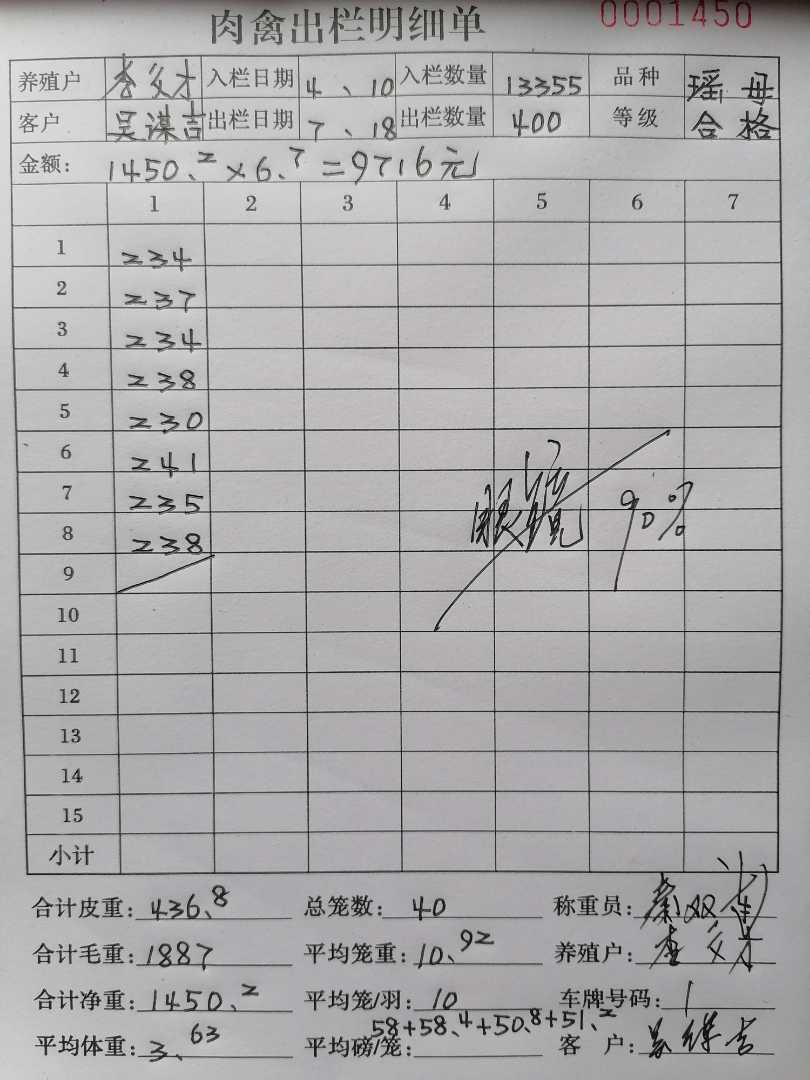 肉禽出栏明细单 0001450
养殖户 李多才 入栏日期 4、10 入栏数量 13355 品种 瑶母
客户 吴谋吉 出栏日期 7、18 出栏数量 400 等级 合格
金额: 1450.2×6.7=9716元
1 2 3 4 5 6 7
1 234
2 237
3 234
4 238
5 230
6 241
7 235
8 238
眼镜 90%
9
10
11
12
13
14
15
小计
合计皮重: 436.8 总笼数: 40 称重员:
合计毛重: 1887 平均笼重: 10.92 养殖户: 李多才
合计净重: 1450.2 平均笼/羽: 10 车牌号码: /
58+58.4+50.8+51.2
平均体重: 3.63 平均磅/笼: 客户: 吴谋吉